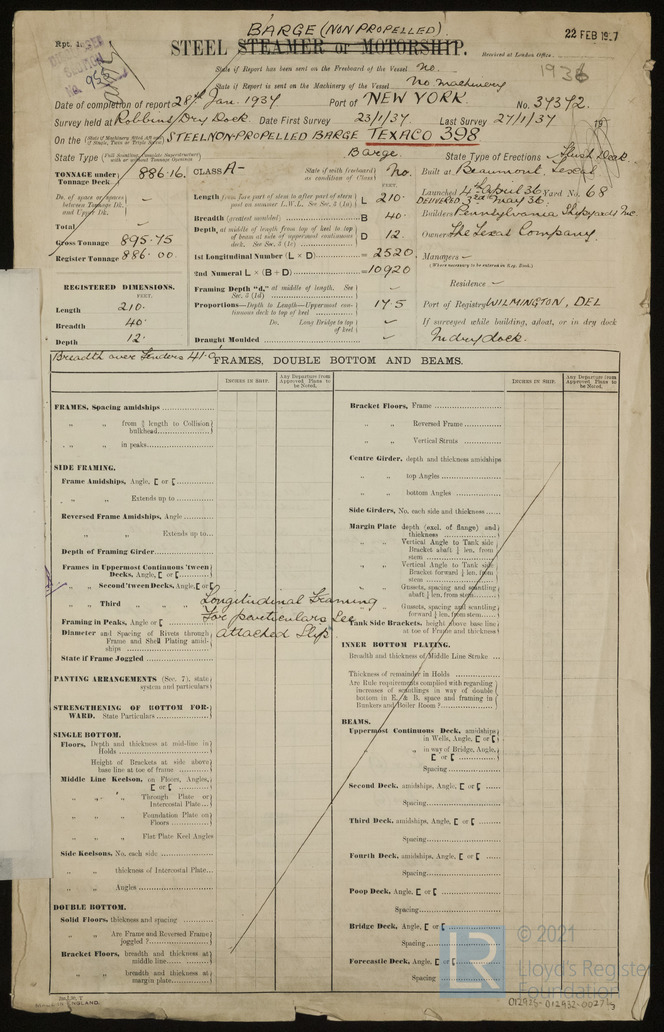 BARGE (NON PROPELLED)
Rpt. 1.
22 FEB 1937
STEEL STEAMER or MOTORSHIP.
Received at London Office
State if Report has been sent on the Freeboard of the Vessel No.
1936
State if Report is sent on the Machinery of the Vessel No machinery
Date of completion of report 28th Jan. 1937 Port of NEW YORK. No. 37372.
Survey held at Robbins Dry Dock. Date First Survey 23/1/37 Last Survey 27/1/37 19
On the STEEL NON-PROPELLED BARGE TEXACO 398
State Type Barge. State Type of Erections Flush Deck
TONNAGE under Tonnage Deck 886.16.
CLASS A- State if with freeboard as condition of Class No.
Built at Beaumont, Texas
Launched 4th April 36 Yard No. 68
DELIVERED 3rd May 36.
Length from fore part of stem to after part of stern post on summer L.W.L. See Sec. 3 (1a) L 210.
Breadth (greatest moulded) B 40.
Builders Pennsylvania Shipyards Inc.
Depth, at middle of length from top of keel to top of beam at side of uppermost continuous deck. See Sec. 3 (1c) D 12.
Owners The Texas Company.
Total
Gross Tonnage 895.75
Register Tonnage 886.00.
1st Longitudinal Number (L × D) = 2520
2nd Numeral L × (B + D) = 10920
Managers -
(Where necessary to be entered in Reg. Book.)
Residence -
REGISTERED DIMENSIONS.
FEET.
Length 210.
Breadth 40.
Depth 12.
Framing Depth "d," at middle of length. See Sec. 3 (1d)
Proportions—Depth to Length—Uppermost continuous deck to top of keel 17.5
Do. Long Bridge to top of keel
Draught Moulded
Port of Registry WILMINGTON, DEL
If surveyed while building, afloat, or in dry dock
In dry dock.
Breadth over fenders 41.0
FRAMES, DOUBLE BOTTOM AND BEAMS.
INCHES IN SHIP.
Any Departure from Approved Plans to be Noted.
INCHES IN SHIP.
Any Departure from Approved Plans to be Noted.
FRAMES, Spacing amidships
„ „ from ⅗ length to Collision bulkhead
„ „ in peaks
SIDE FRAMING.
Frame Amidships, Angle, [ or [
„ „ Extends up to
Reversed Frame Amidships, Angle
„ „ Extends up to
Depth of Framing Girder
Frames in Uppermost Continuous 'tween Decks, Angle, [ or [
„ „ Second 'tween Decks, Angle, [ or [
„ „ Third „ „ „
Framing in Peaks, Angle or [
Diameter and Spacing of Rivets through Frame and Shell Plating amidships
Longitudinal Framing
For particulars see
attached slip.
State if Frame Joggled
PANTING ARRANGEMENTS (Sec. 7), state system and particulars
STRENGTHENING OF BOTTOM FORWARD. State Particulars
SINGLE BOTTOM.
Floors, Depth and thickness at mid-line in Holds
Height of Brackets at side above base line at toe of frame
Middle Line Keelson, on Floors, Angles, [ or [
„ „ Through Plate or Intercostal Plate
„ „ Foundation Plate on Floors
„ „ Flat Plate Keel Angles
Side Keelsons, No. each side
„ „ thickness of Intercostal Plate
„ „ Angles
DOUBLE BOTTOM.
Solid Floors, thickness and spacing
„ „ Are Frame and Reversed Frame joggled?
Bracket Floors, breadth and thickness at middle line
„ „ breadth and thickness at margin plate
Bracket Floors, Frame
„ „ Reversed Frame
„ „ Vertical Struts
Centre Girder, depth and thickness amidships
„ „ top Angles
„ „ bottom Angles
Side Girders, No. each side and thickness
Margin Plate depth (excl. of flange) and thickness
„ „ Vertical Angle to Tank side Bracket abaft ¼ len. from stem
„ „ Vertical Angle to Tank side Bracket forward ¼ len. from stem
„ „ Gussets, spacing and scantling abaft ¼ len. from stem
„ „ Gussets, spacing and scantling forward ¼ len. from stem
Tank Side Brackets, height above base line at toe of Frame and thickness
INNER BOTTOM PLATING.
Breadth and thickness of Middle Line Strake
Thickness of remainder in Holds
Are Rule requirements complied with regarding increases of scantlings in way of double bottom in E. & B. space and framing in Bunkers and Boiler Room?
BEAMS.
Uppermost Continuous Deck, amidships in Wells, Angle, [ or [
„ „ in way of Bridge, Angle, [ or [
Spacing
Second Deck, amidships, Angle, [ or [
Spacing
Third Deck, amidships, Angle, [ or [
Spacing
Fourth Deck, amidships, Angle, [ or [
Spacing
Poop Deck, Angle, [ or [
Spacing
Bridge Deck, Angle, [ or [
Spacing
Forecastle Deck, Angle, [ or [
Spacing
© 2021
Lloyd's Register
Foundation